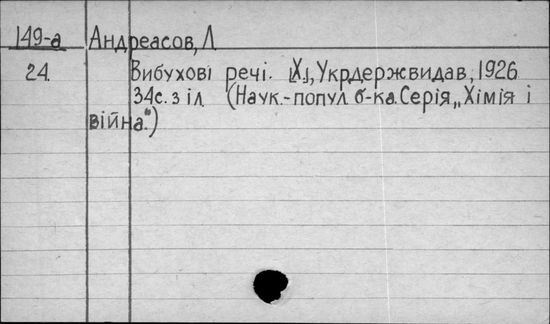 149-а Андреасов, Л
24. Вибухові речі. [Х.], Укрдержвидав, 1926
34с. з іл. (Наук.-попул. б-ка. Серія „Хімія і
війна".)